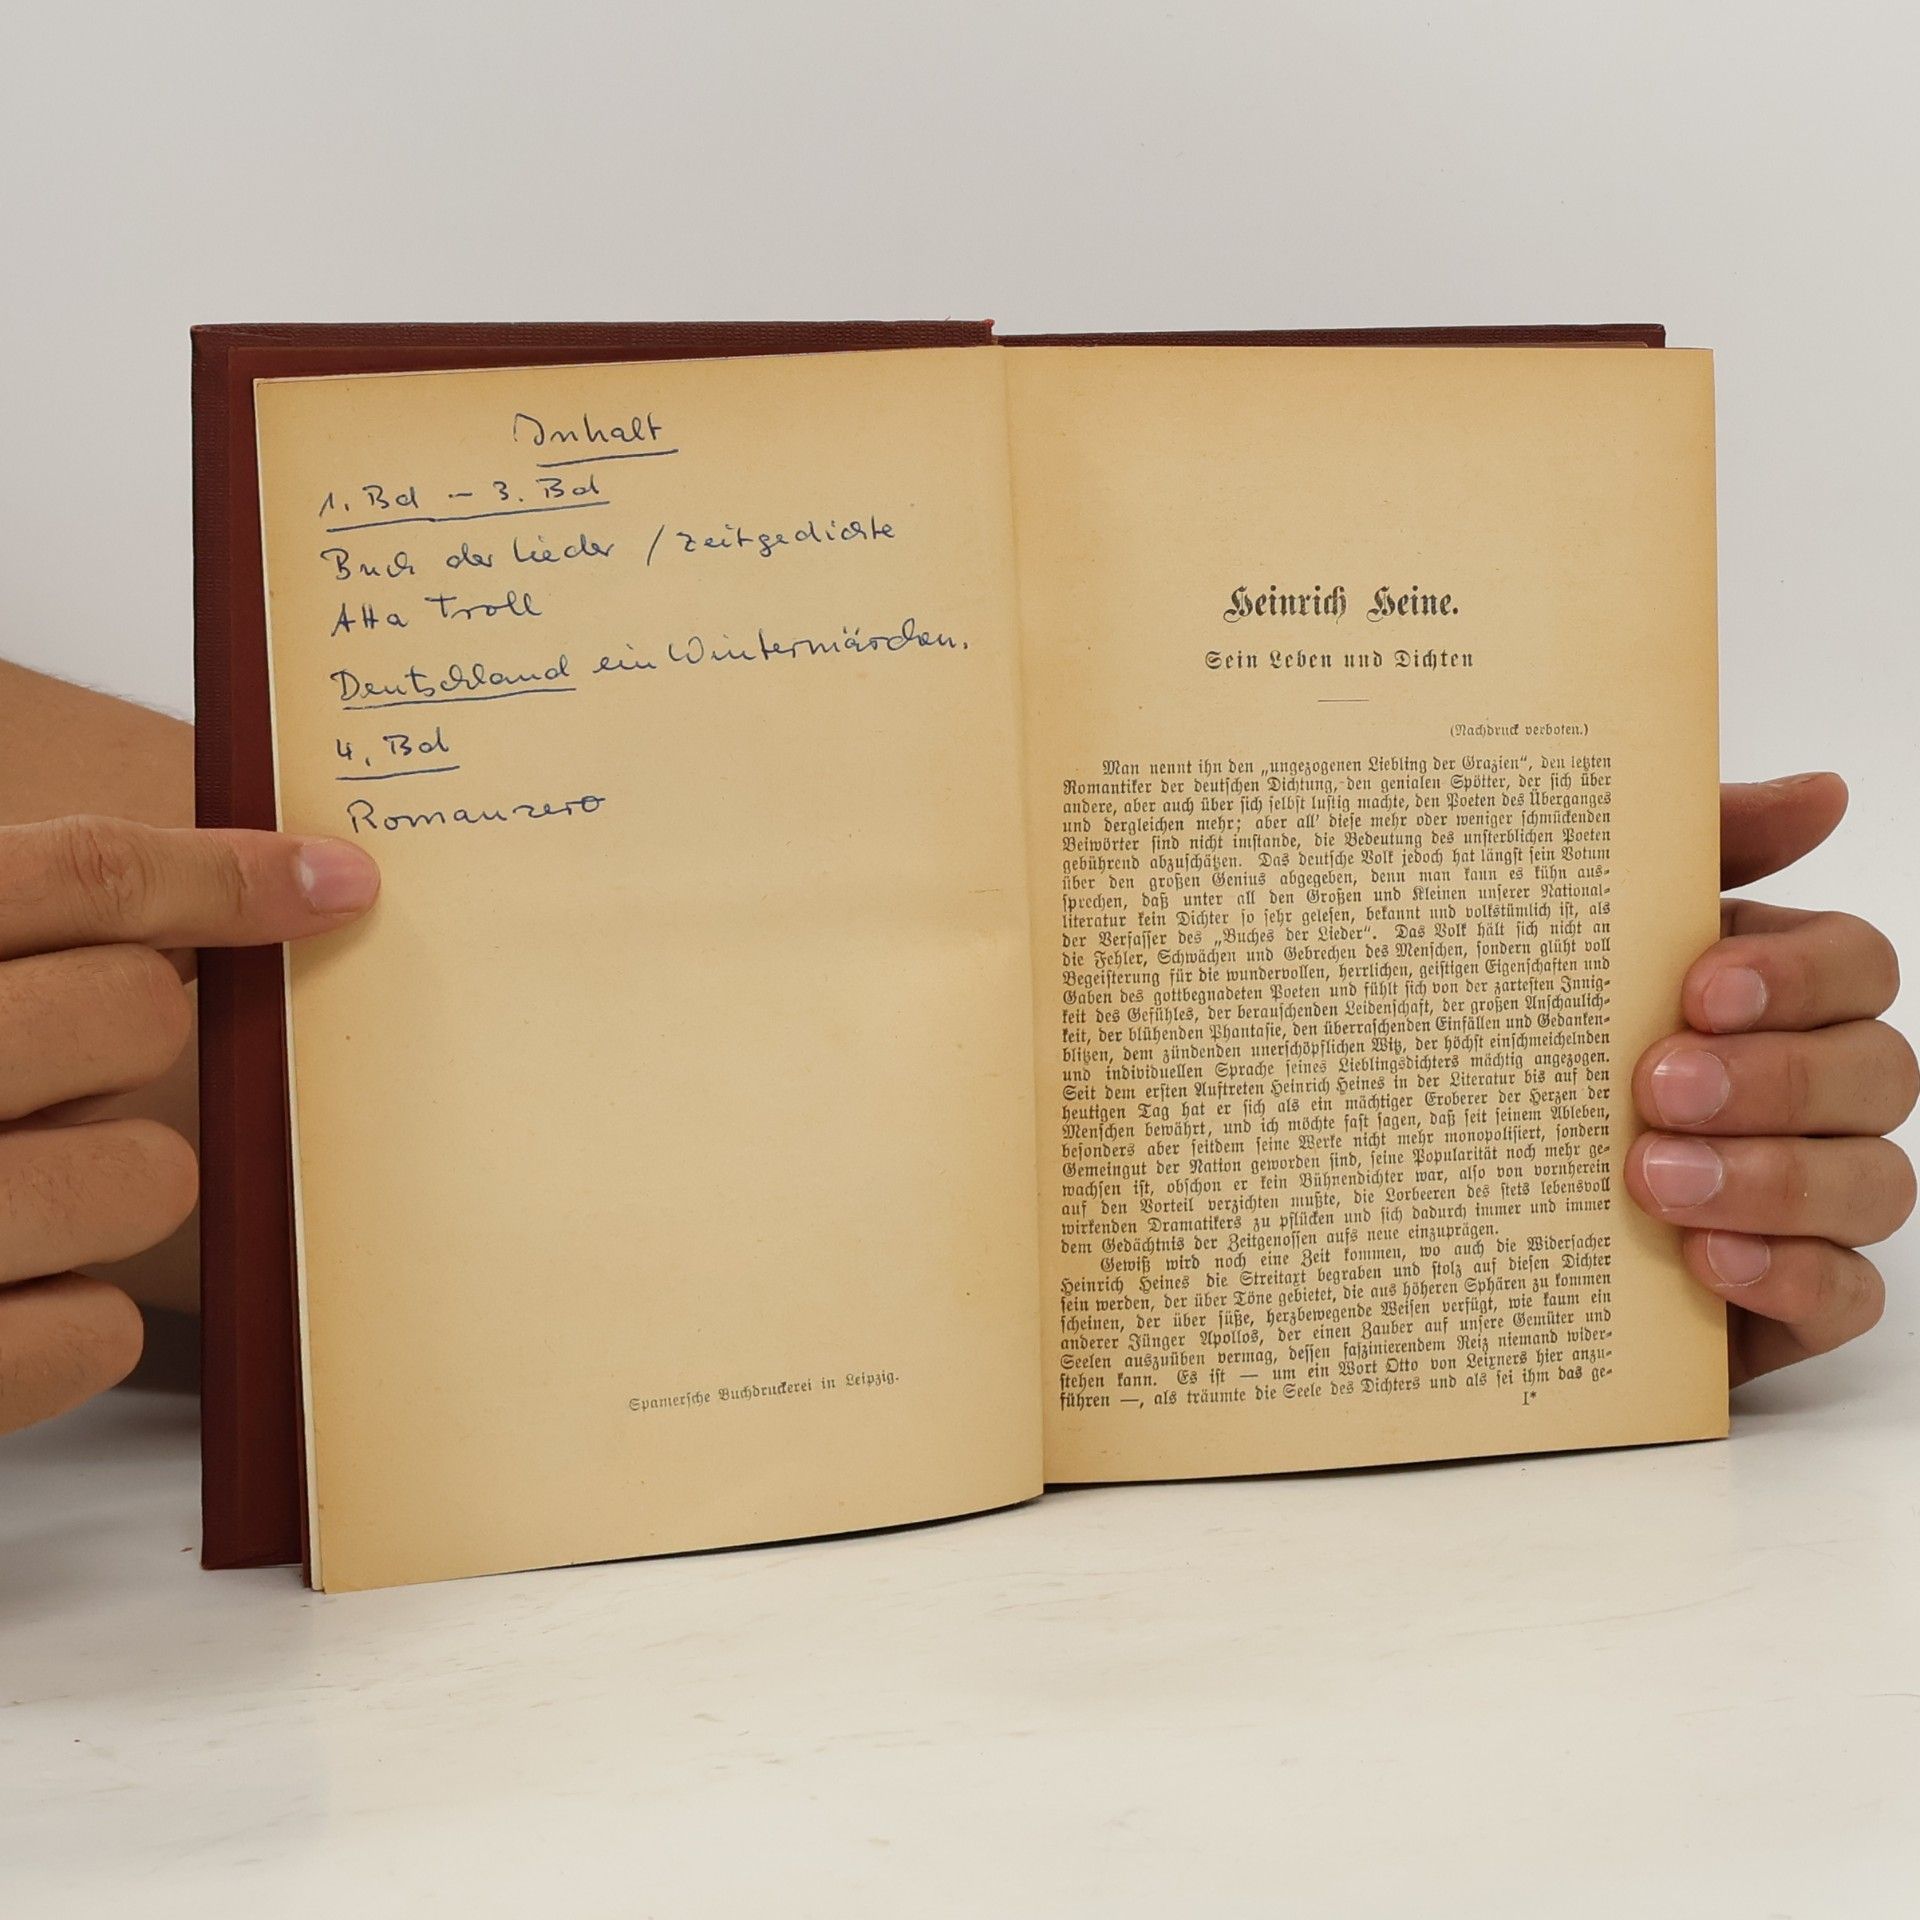 Inhalt
1. Bd – 3. Bd
Buch der Lieder / Zeitgedichte
Atta Troll
Deutschland ein Wintermärchen.
4. Bd
Romanzero
Spamersche Buchdruckerei in Leipzig.
Heinrich Heine.
Sein Leben und Dichten
(Nachdruck verboten.)
Man nennt ihn den „ungezogenen Liebling der Grazien“, den letzten
Romantiker der deutschen Dichtung, den genialen Spötter, der sich über
andere, aber auch über sich selbst lustig machte, den Poeten des Überganges
und dergleichen mehr; aber all' diese mehr oder weniger schmückenden
Beiwörter sind nicht imstande, die Bedeutung des unsterblichen Poeten
gebührend abzuschätzen. Das deutsche Volk jedoch hat längst sein Votum
über den großen Genius abgegeben, denn man kann es kühn aus-
sprechen, daß unter all den Großen und Kleinen unserer National-
literatur kein Dichter so sehr gelesen, bekannt und volkstümlich ist, als
der Verfasser des „Buches der Lieder“. Das Volk hält sich nicht an
die Fehler, Schwächen und Gebrechen des Menschen, sondern glüht voll
Begeisterung für die wundervollen, herrlichen, geistigen Eigenschaften und
Gaben des gottbegnadeten Poeten und fühlt sich von der zartesten Innig-
keit des Gefühles, der berauschenden Leidenschaft, der großen Anschaulich-
keit, der blühenden Phantasie, den überraschenden Einfällen und Gedanken-
blitzen, dem zündenden unerschöpflichen Witz, der höchst einschmeichelnden
und individuellen Sprache seines Lieblingsdichters mächtig angezogen.
Seit dem ersten Auftreten Heinrich Heines in der Literatur bis auf den
heutigen Tag hat er sich als ein mächtiger Eroberer der Herzen der
Menschen bewährt, und ich möchte fast sagen, daß seit seinem Ableben,
besonders aber seitdem seine Werke nicht mehr monopolisiert, sondern
Gemeingut der Nation geworden sind, seine Popularität noch mehr ge-
wachsen ist, obschon er kein Bühnendichter war, also von vornherein
auf den Vorteil verzichten mußte, die Lorbeeren des stets lebensvoll
wirkenden Dramatikers zu pflücken und sich dadurch immer und immer
dem Gedächtnis der Zeitgenossen aufs neue einzuprägen.
Gewiß wird noch eine Zeit kommen, wo auch die Widersacher
Heinrich Heines die Streitaxt begraben und stolz auf diesen Dichter
sein werden, der über Töne gebietet, die aus höheren Sphären zu kommen
scheinen, der über süße, herzbewegende Weisen verfügt, wie kaum ein
anderer Jünger Apollos, der einen Zauber auf unsere Gemüter und
Seelen auszuüben vermag, dessen faszinierendem Reiz niemand wider-
stehen kann. Es ist — um ein Wort Otto von Leixners hier anzu-
führen —, als träumte die Seele des Dichters und als sei ihm das ge-
I*